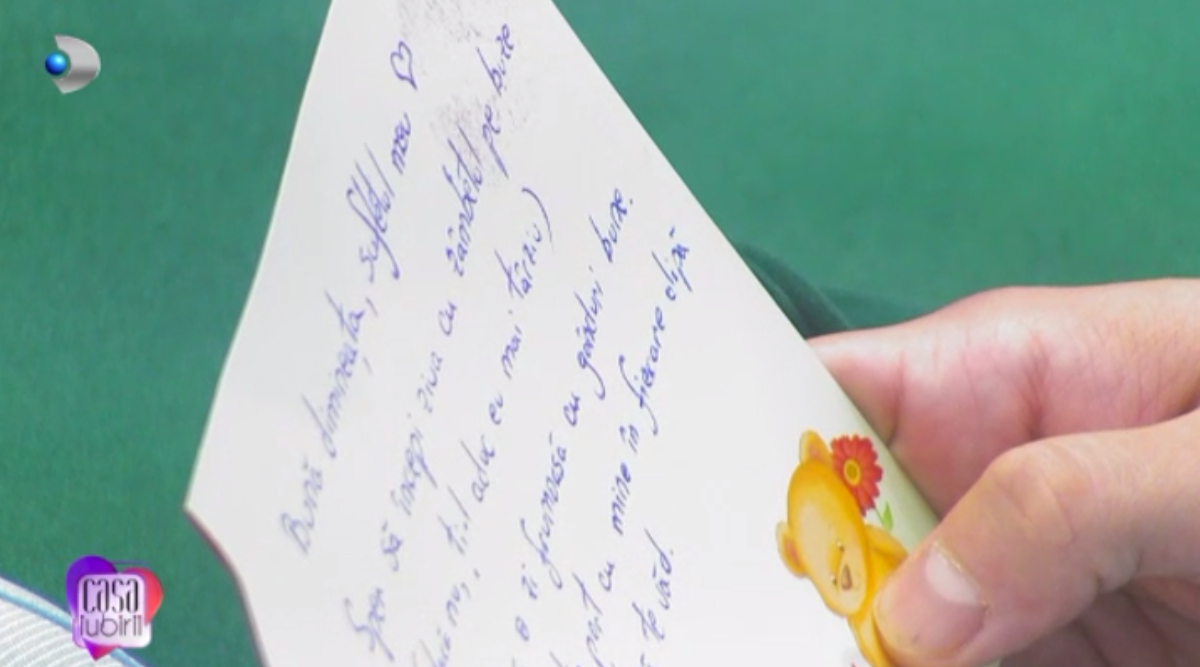 Bună dimineața, sufletul meu ♡
Sper să începi ziua cu zâmbetul pe buze
nu, ți-l aduc eu mai târziu)
o zi frumoasă cu gânduri bune.
cu mine în fiecare clipă
te văd.
casa
iubirii